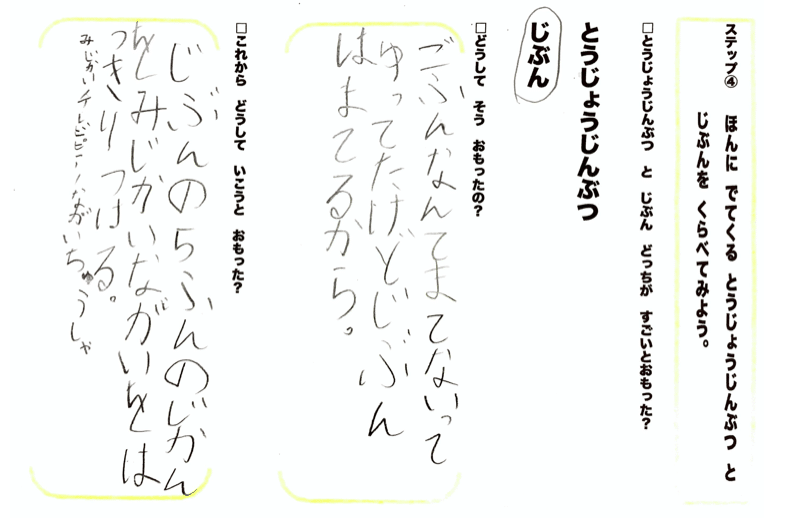 ステップ④ ほんに でてくる とうじょうじんぶつ と
じぶんを くらべてみよう。
□とうじょうじんぶつ と じぶん どっちが すごいとおもった?
とうじょうじんぶつ
じぶん
□どうして そう おもったの?
ごふんなんてまてないって
ゆってたけどじぶん
はまてるから。
□これから どうして いこうと おもった?
じぶんのらふんのじかん
をとみじかいながいをとは
つきりつける。
みじかいテレビピアノながいちゅうしゃ